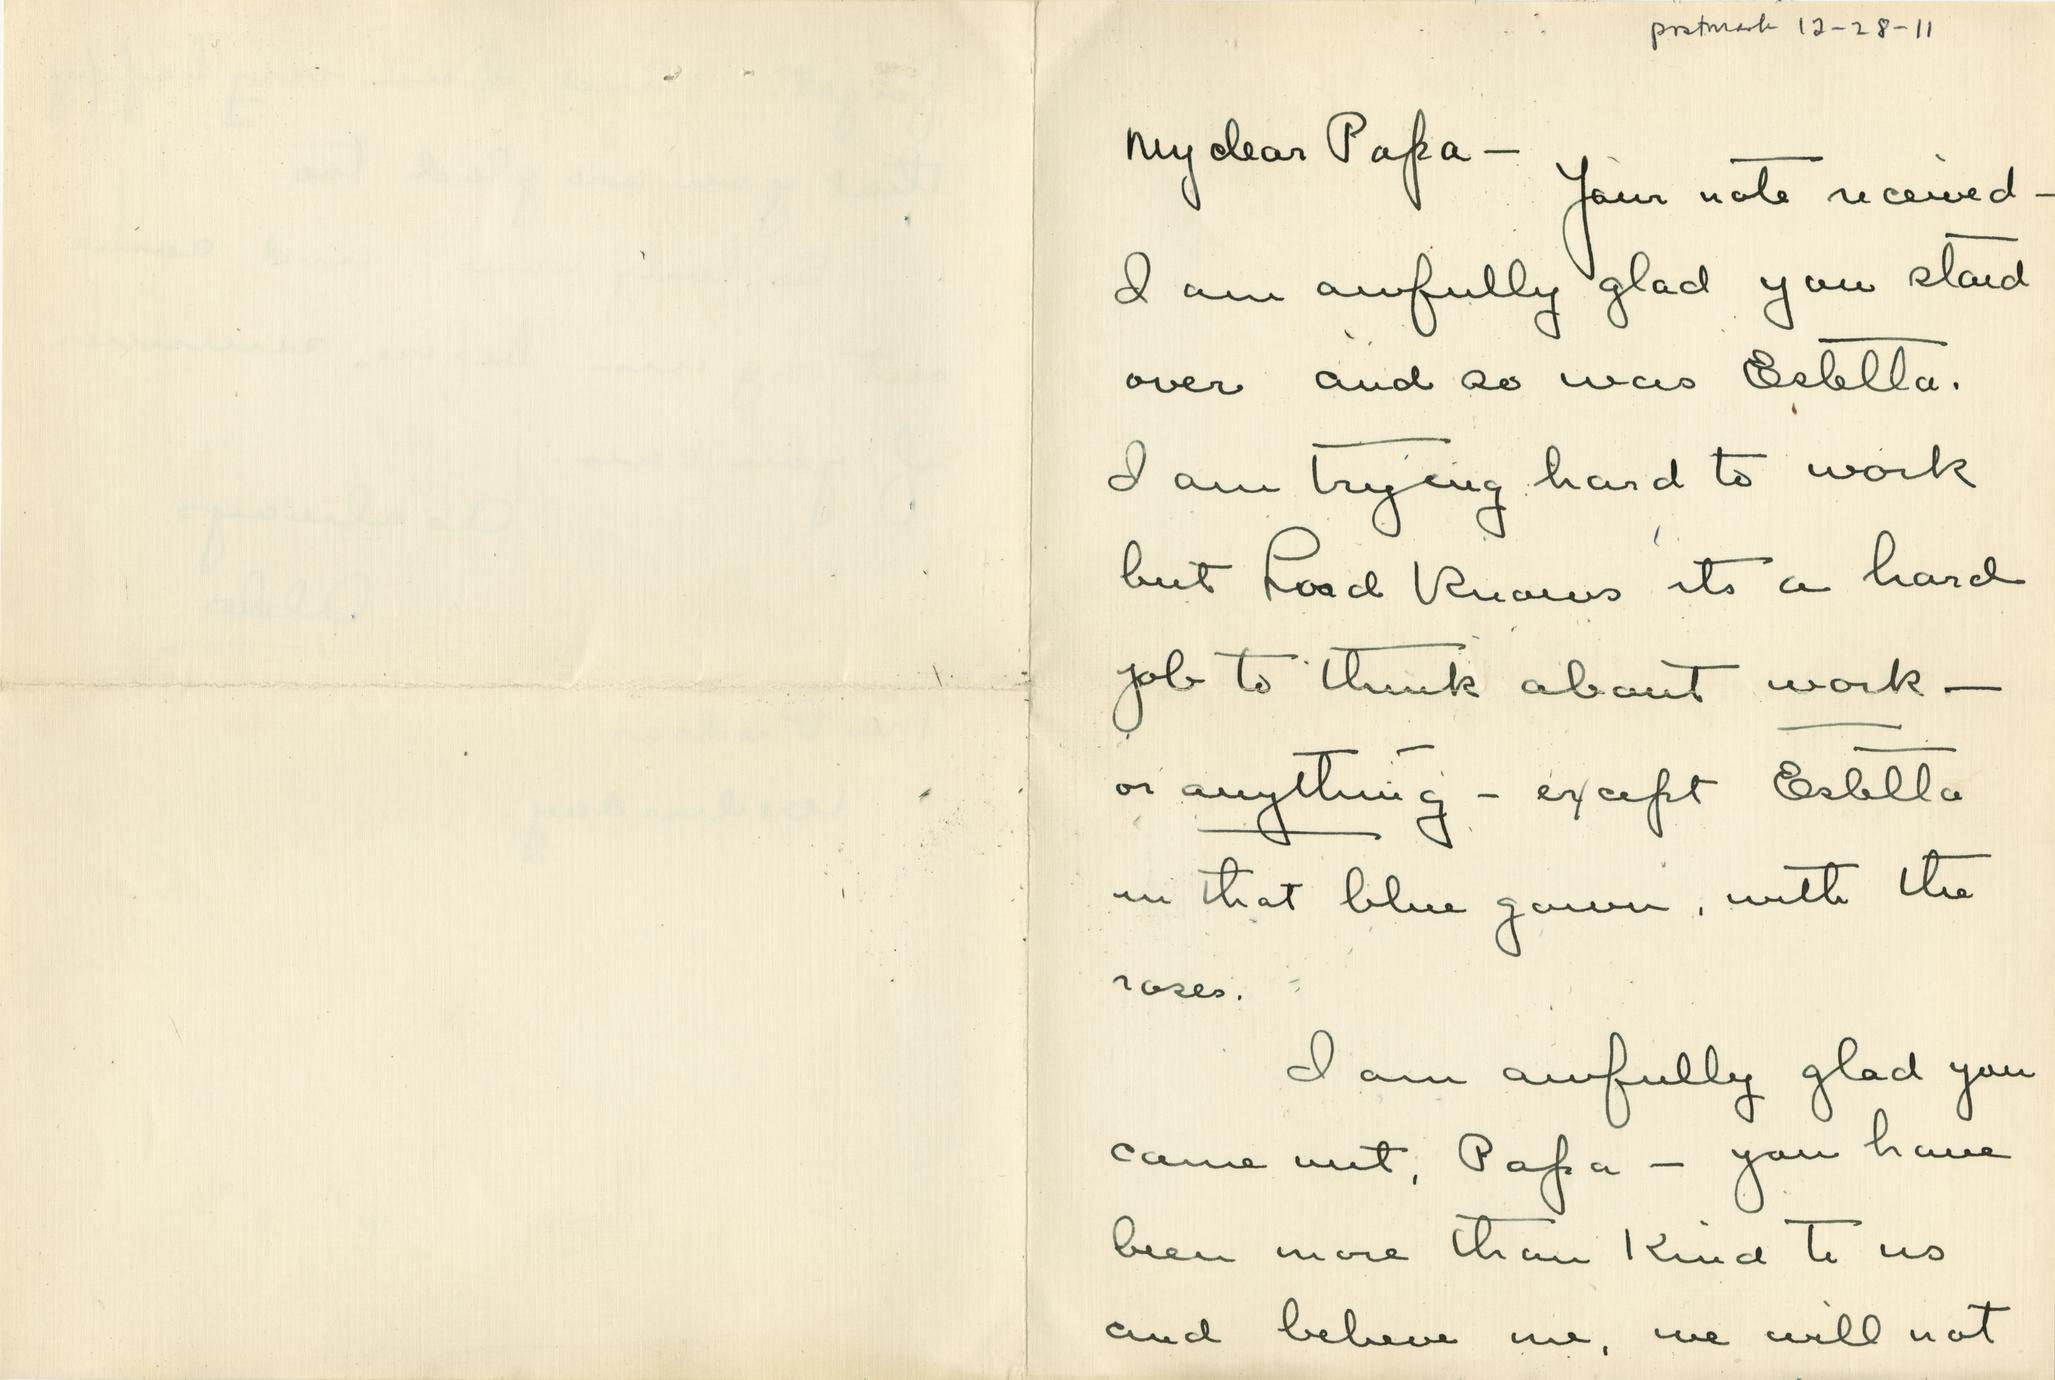 postmark 12-28-11
My dear Papa —
Your note received —
I am awfully glad you staid
over and so was Estella.
I am trying hard to work
but Lord Knows its a hard
job to think about work —
or anything — except Estella
in that blue gown, with the
roses.
I am awfully glad you
came out, Papa — you have
been more than Kind to us
and believe me, we will not